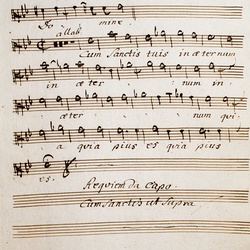 mine.
allab:
Cum Sanctis tuis in æternum
in æter num in
æter num qui
a quia pius es quia pius
es.
Requiem da Capo.
Cum Sanctis ut Supra